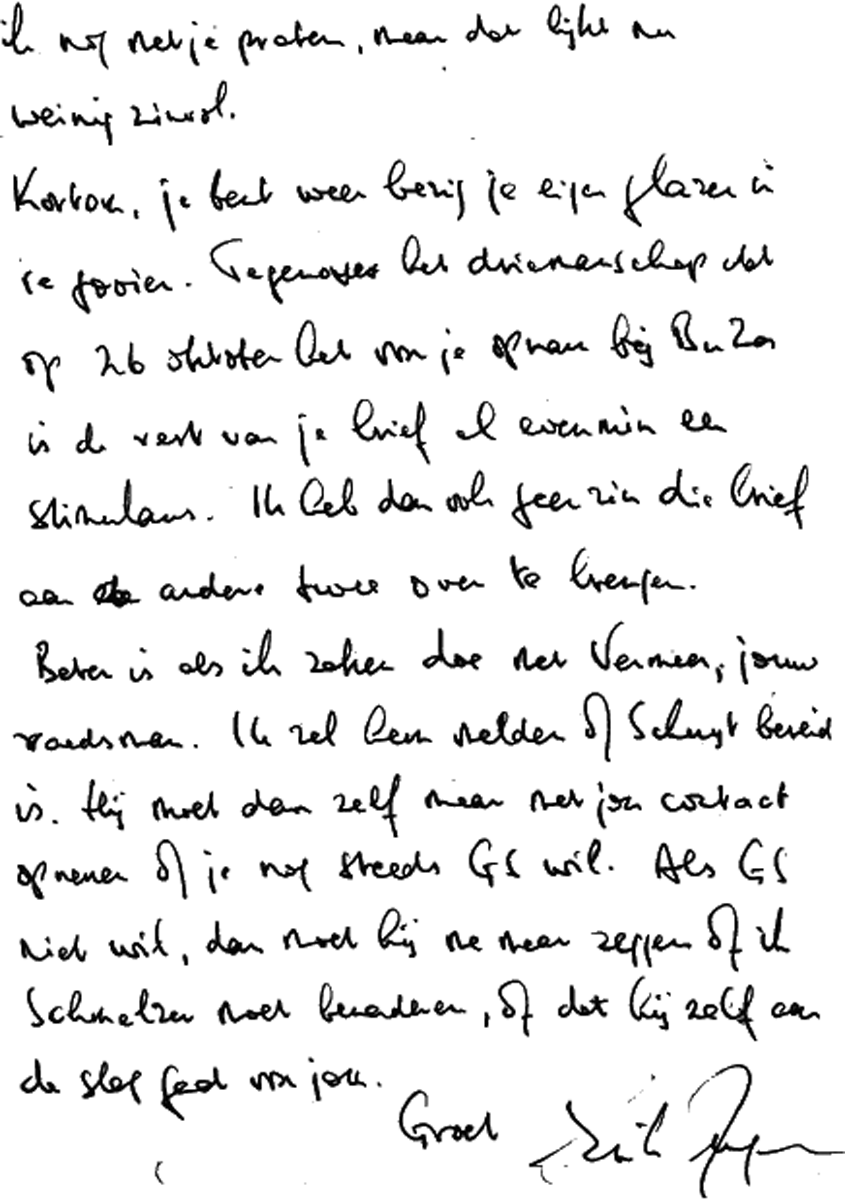 ik nog met je praten, maar dat lijkt nu
weinig zinvol.
Kortom, je bent weer bezig je eigen glazen in
te gooien. Tegenover het driemanschap dat
op 26 oktober het voor je opnam bij BuZa
is de rest van je brief al evenmin een
stimulans. Ik heb dan ook geen zin die brief
aan de andere twee over te brengen.
Beter is als ik zaken doe met Vermeer, jouw
raadsman. Ik zal hem melden of Schuyt bereid
is. Hij moet dan zelf maar met jou contact
opnemen of je nog steeds GS wil. Als GS
niet wil, dan moet hij me maar zeggen of ik
Schmelzer moet benaderen, of dat hij zelf aan
de slag gaat voor jou.
Groet